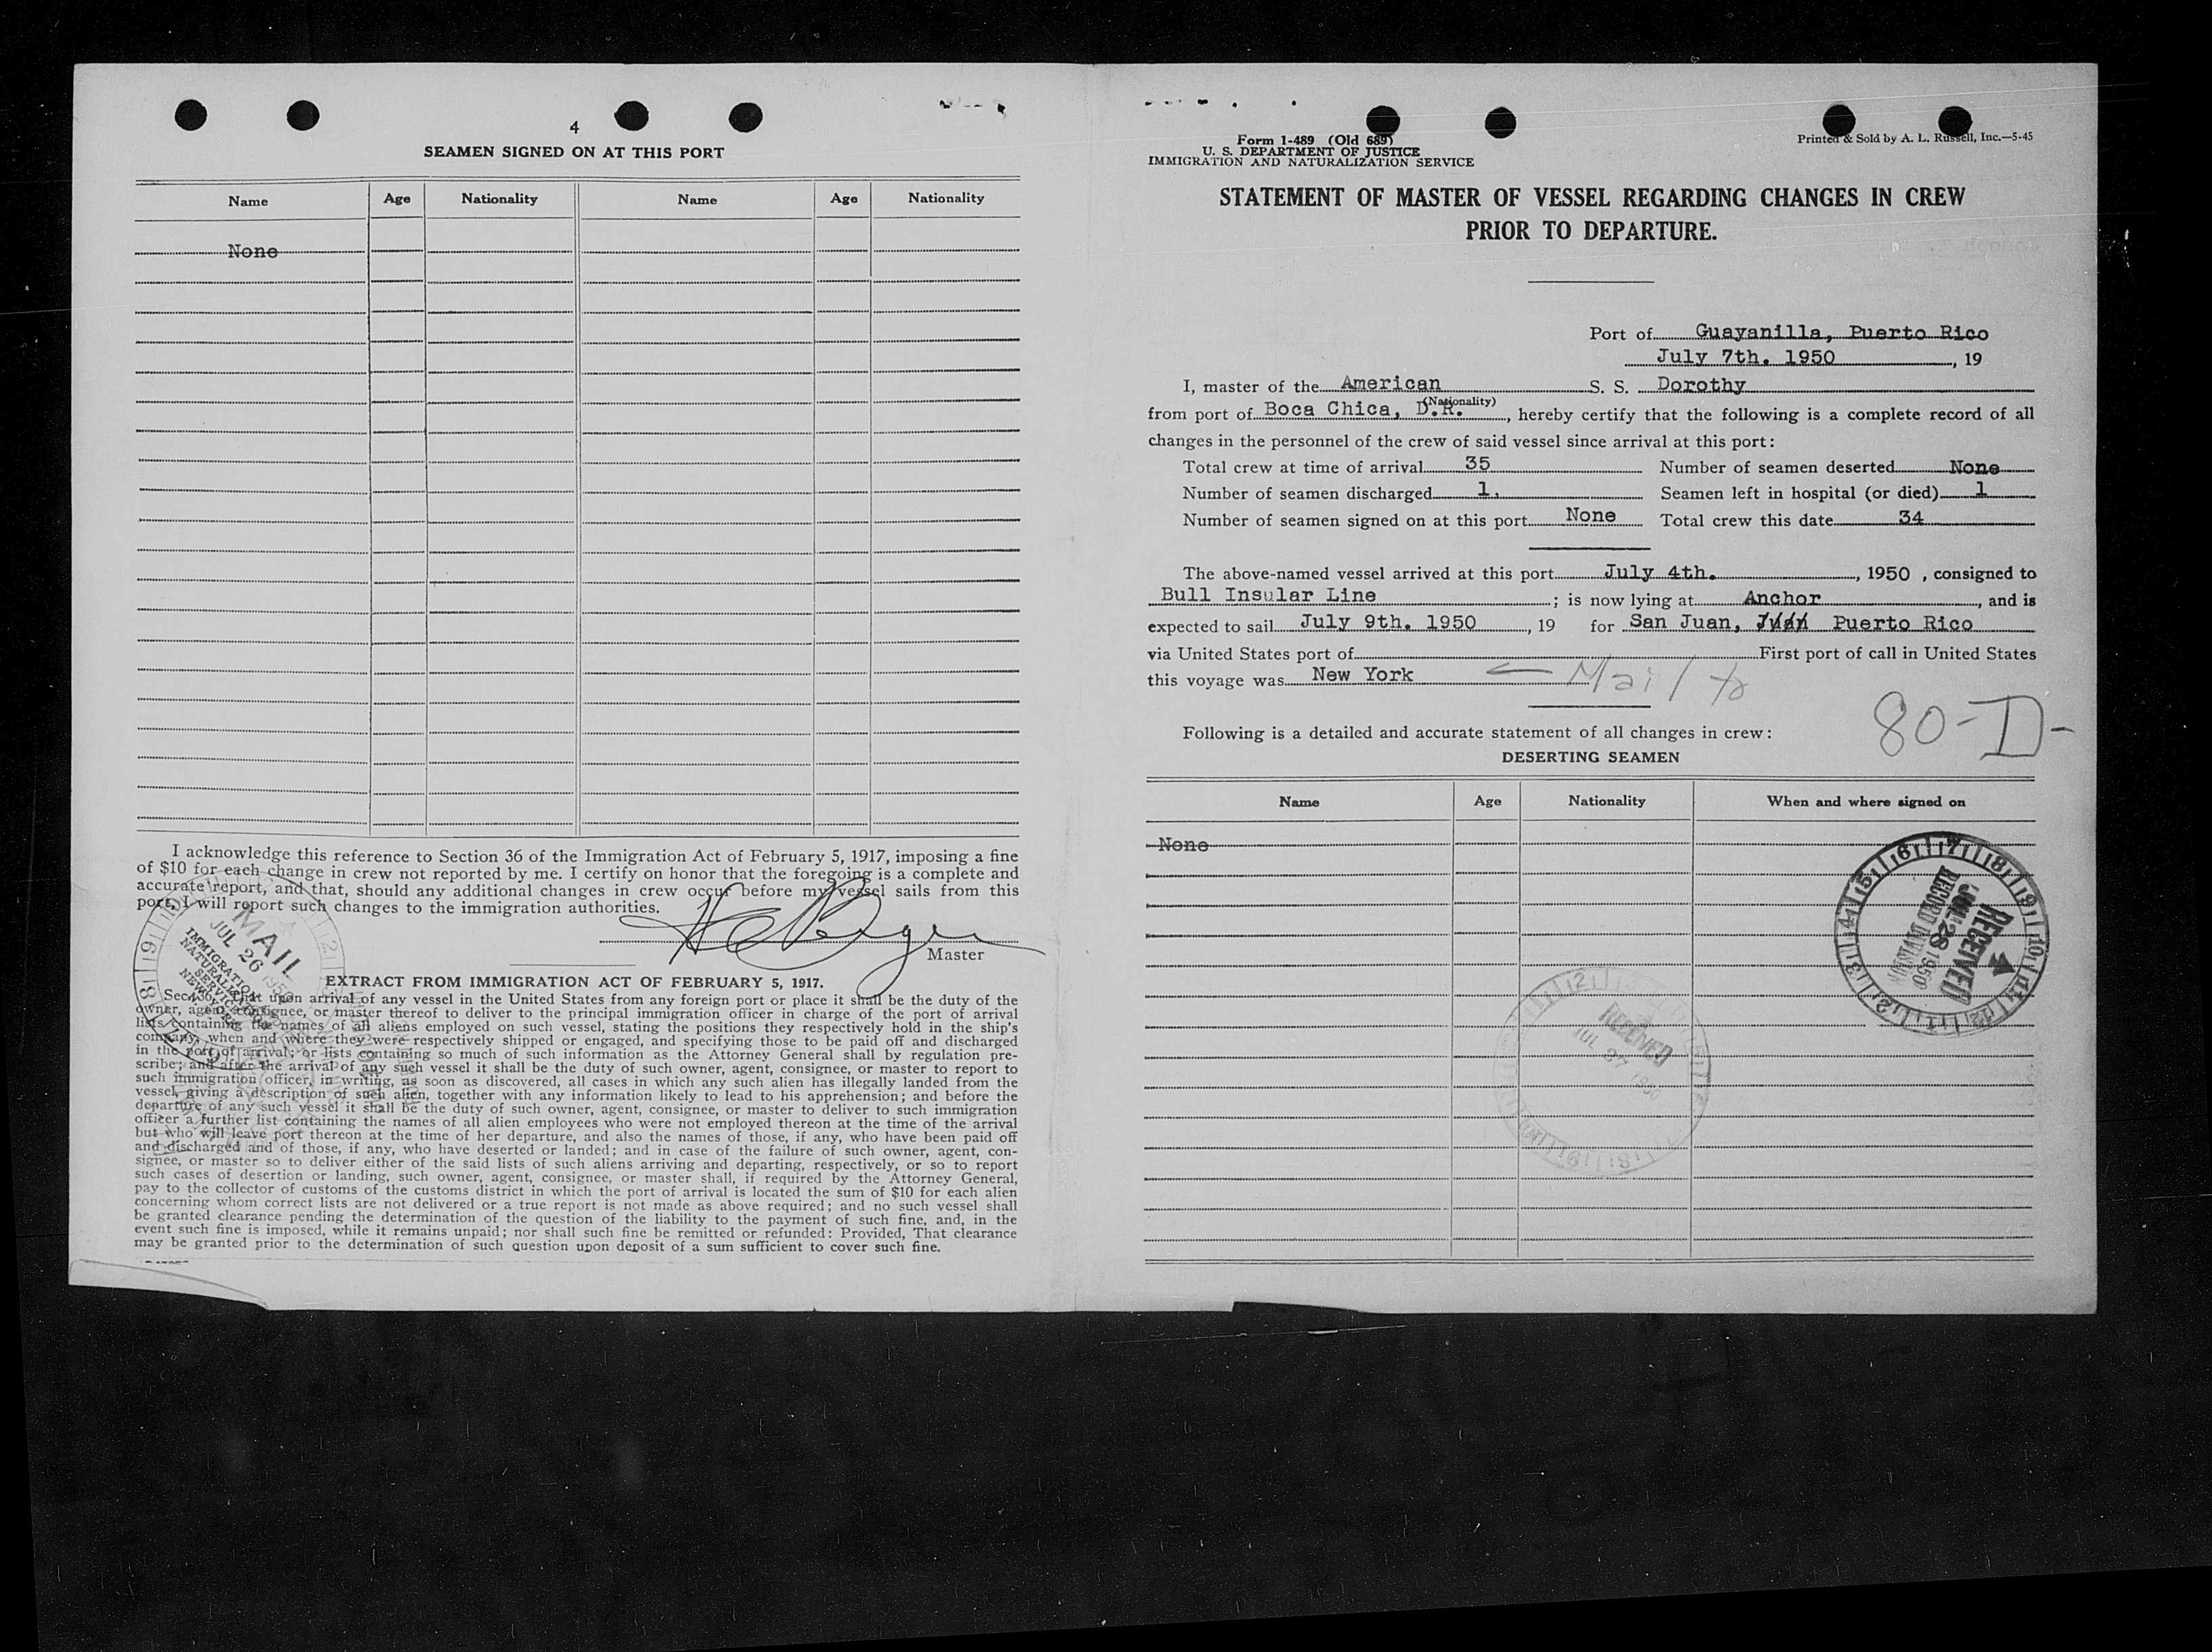 4
SEAMEN SIGNED ON AT THIS PORT
Name Age Nationality Name Age Nationality
None
I acknowledge this reference to Section 36 of the Immigration Act of February 5, 1917, imposing a fine
of $10 for each change in crew not reported by me. I certify on honor that the foregoing is a complete and
accurate report, and that, should any additional changes in crew occur before my vessel sails from this
port, I will report such changes to the immigration authorities.
Master
MAIL
JUL 26 1950
IMMIGRATION
NATURALIZATION
SERVICE
NEW YORK
EXTRACT FROM IMMIGRATION ACT OF FEBRUARY 5, 1917.
Sec. 36. That upon arrival of any vessel in the United States from any foreign port or place it shall be the duty of the
owner, agent, consignee, or master thereof to deliver to the principal immigration officer in charge of the port of arrival
lists containing the names of all aliens employed on such vessel, stating the positions they respectively hold in the ship's
company, when and where they were respectively shipped or engaged, and specifying those to be paid off and discharged
in the port of arrival; or lists containing so much of such information as the Attorney General shall by regulation pre-
scribe; and after the arrival of any such vessel it shall be the duty of such owner, agent, consignee, or master to report to
such immigration officer, in writing, as soon as discovered, all cases in which any such alien has illegally landed from the
vessel, giving a description of such alien, together with any information likely to lead to his apprehension; and before the
departure of any such vessel it shall be the duty of such owner, agent, consignee, or master to deliver to such immigration
officer a further list containing the names of all alien employees who were not employed thereon at the time of the arrival
but who will leave port thereon at the time of her departure, and also the names of those, if any, who have been paid off
and discharged and of those, if any, who have deserted or landed; and in case of the failure of such owner, agent, con-
signee, or master so to deliver either of the said lists of such aliens arriving and departing, respectively, or so to report
such cases of desertion or landing, such owner, agent, consignee, or master shall, if required by the Attorney General,
pay to the collector of customs of the customs district in which the port of arrival is located the sum of $10 for each alien
concerning whom correct lists are not delivered or a true report is not made as above required; and no such vessel shall
be granted clearance pending the determination of the question of the liability to the payment of such fine, and, in the
event such fine is imposed, while it remains unpaid; nor shall such fine be remitted or refunded: Provided, That clearance
may be granted prior to the determination of such question upon deposit of a sum sufficient to cover such fine.
Form 1-489 (Old 689)
U. S. DEPARTMENT OF JUSTICE
IMMIGRATION AND NATURALIZATION SERVICE
Printed & Sold by A. L. Russell, Inc.—5-45
STATEMENT OF MASTER OF VESSEL REGARDING CHANGES IN CREW
PRIOR TO DEPARTURE.
Port of Guayanilla, Puerto Rico
July 7th. 1950, 19
I, master of the American S. S. Dorothy
(Nationality)
from port of Boca Chica, D.R., hereby certify that the following is a complete record of all
changes in the personnel of the crew of said vessel since arrival at this port:
Total crew at time of arrival 35 Number of seamen deserted None
Number of seamen discharged 1. Seamen left in hospital (or died) 1
Number of seamen signed on at this port None Total crew this date 34
The above-named vessel arrived at this port July 4th., 1950, consigned to
Bull Insular Line; is now lying at Anchor, and is
expected to sail July 9th. 1950, 19 for San Juan, Juan Puerto Rico
via United States port of First port of call in United States
this voyage was New York Mail to
80-D-
Following is a detailed and accurate statement of all changes in crew:
DESERTING SEAMEN
Name Age Nationality When and where signed on
None
RECEIVED
JUL 28 1950
RECORD DIVISION
RECEIVED
JUL 27 1950